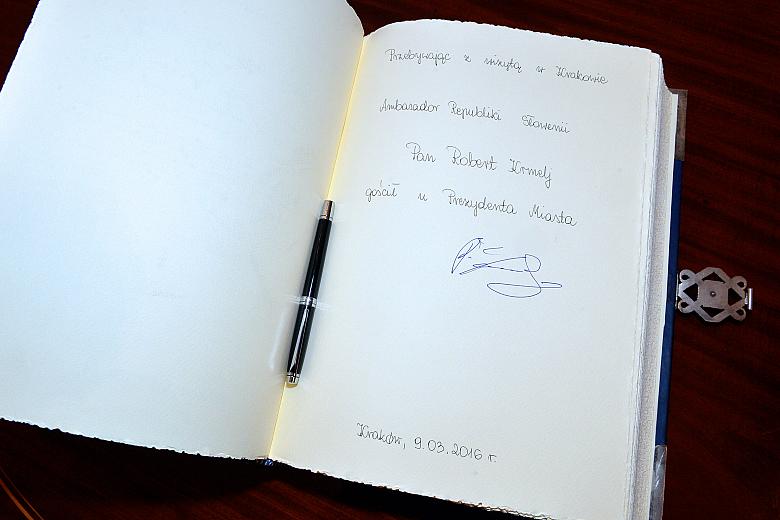 Przebywając z wizytą w Krakowie
Ambasador Republiki Słowenii
Pan Robert Krmelj
gościł u Prezydenta Miasta
Kraków, 9.03.2016 r.